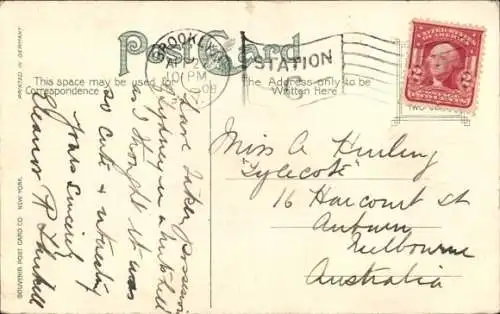 PRINTED IN GERMANY
SOUVENIR POST CARD CO. NEW YORK.
Post Card
This space may be used for
Correspondence
The Address only to be
Written Here
BROOKLYN
10 PM
08
STATION
UNITED STATES OF AMERICA
2 2
TWO CENTS
Have taken possession
of Sydney in a nutshell
as I thought it was
so cute & interesting
Yours sincerely
Eleanor P
Miss A Hurling
"Tylecote"
16 Harcourt St
Auburn
Melbourne
Australia